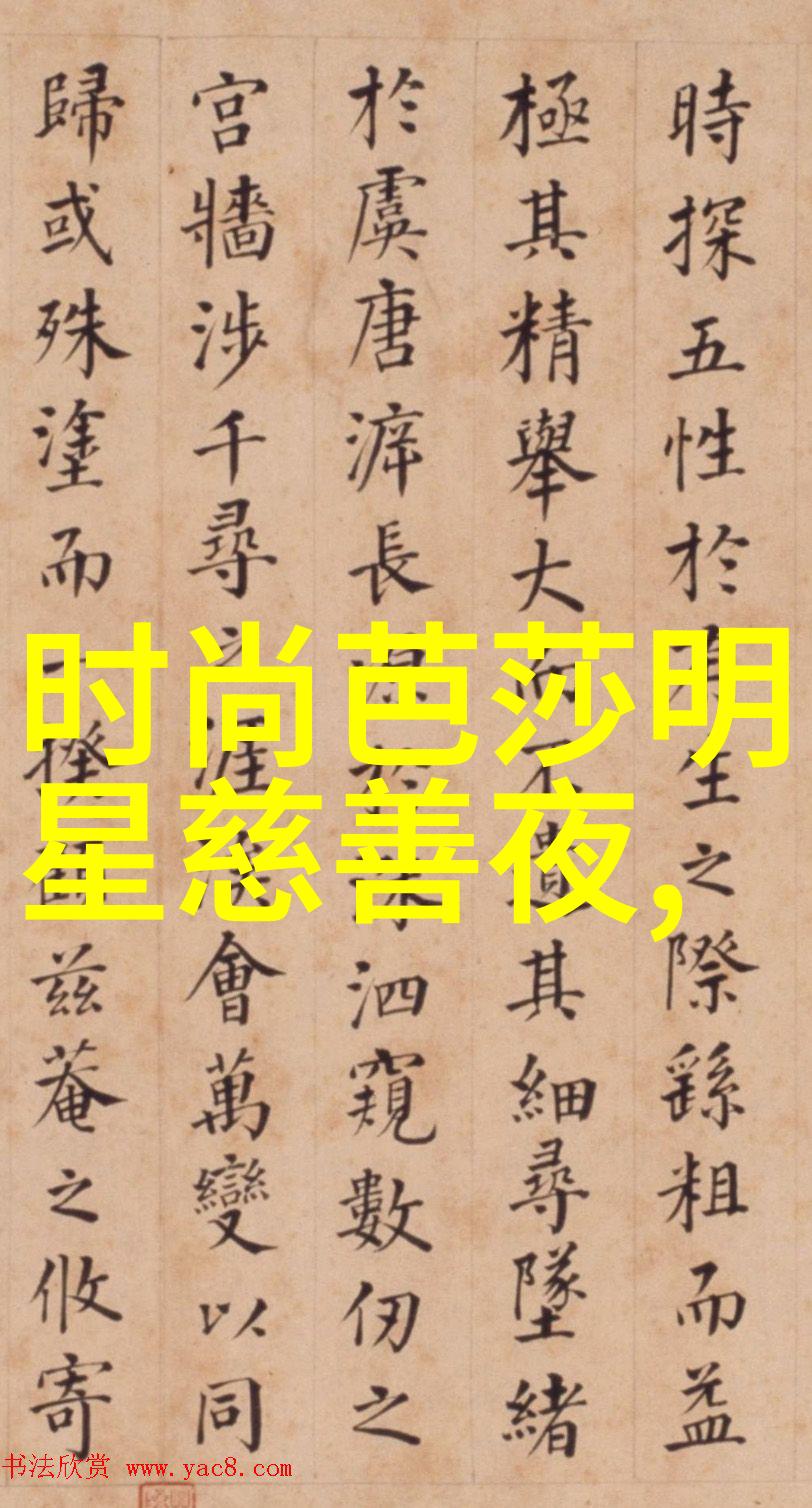 時探五性於有生之際繇粗而益
極其精舉大而不遺其細尋墜緒
於虞唐濬長源於洙泗窺數仞之
宮牆涉千尋之涯涘會萬變以同
歸或殊塗而一揆顧茲菴之攸寄
时尚芭莎明
星慈善夜,
书法欣赏 www.yac8.com